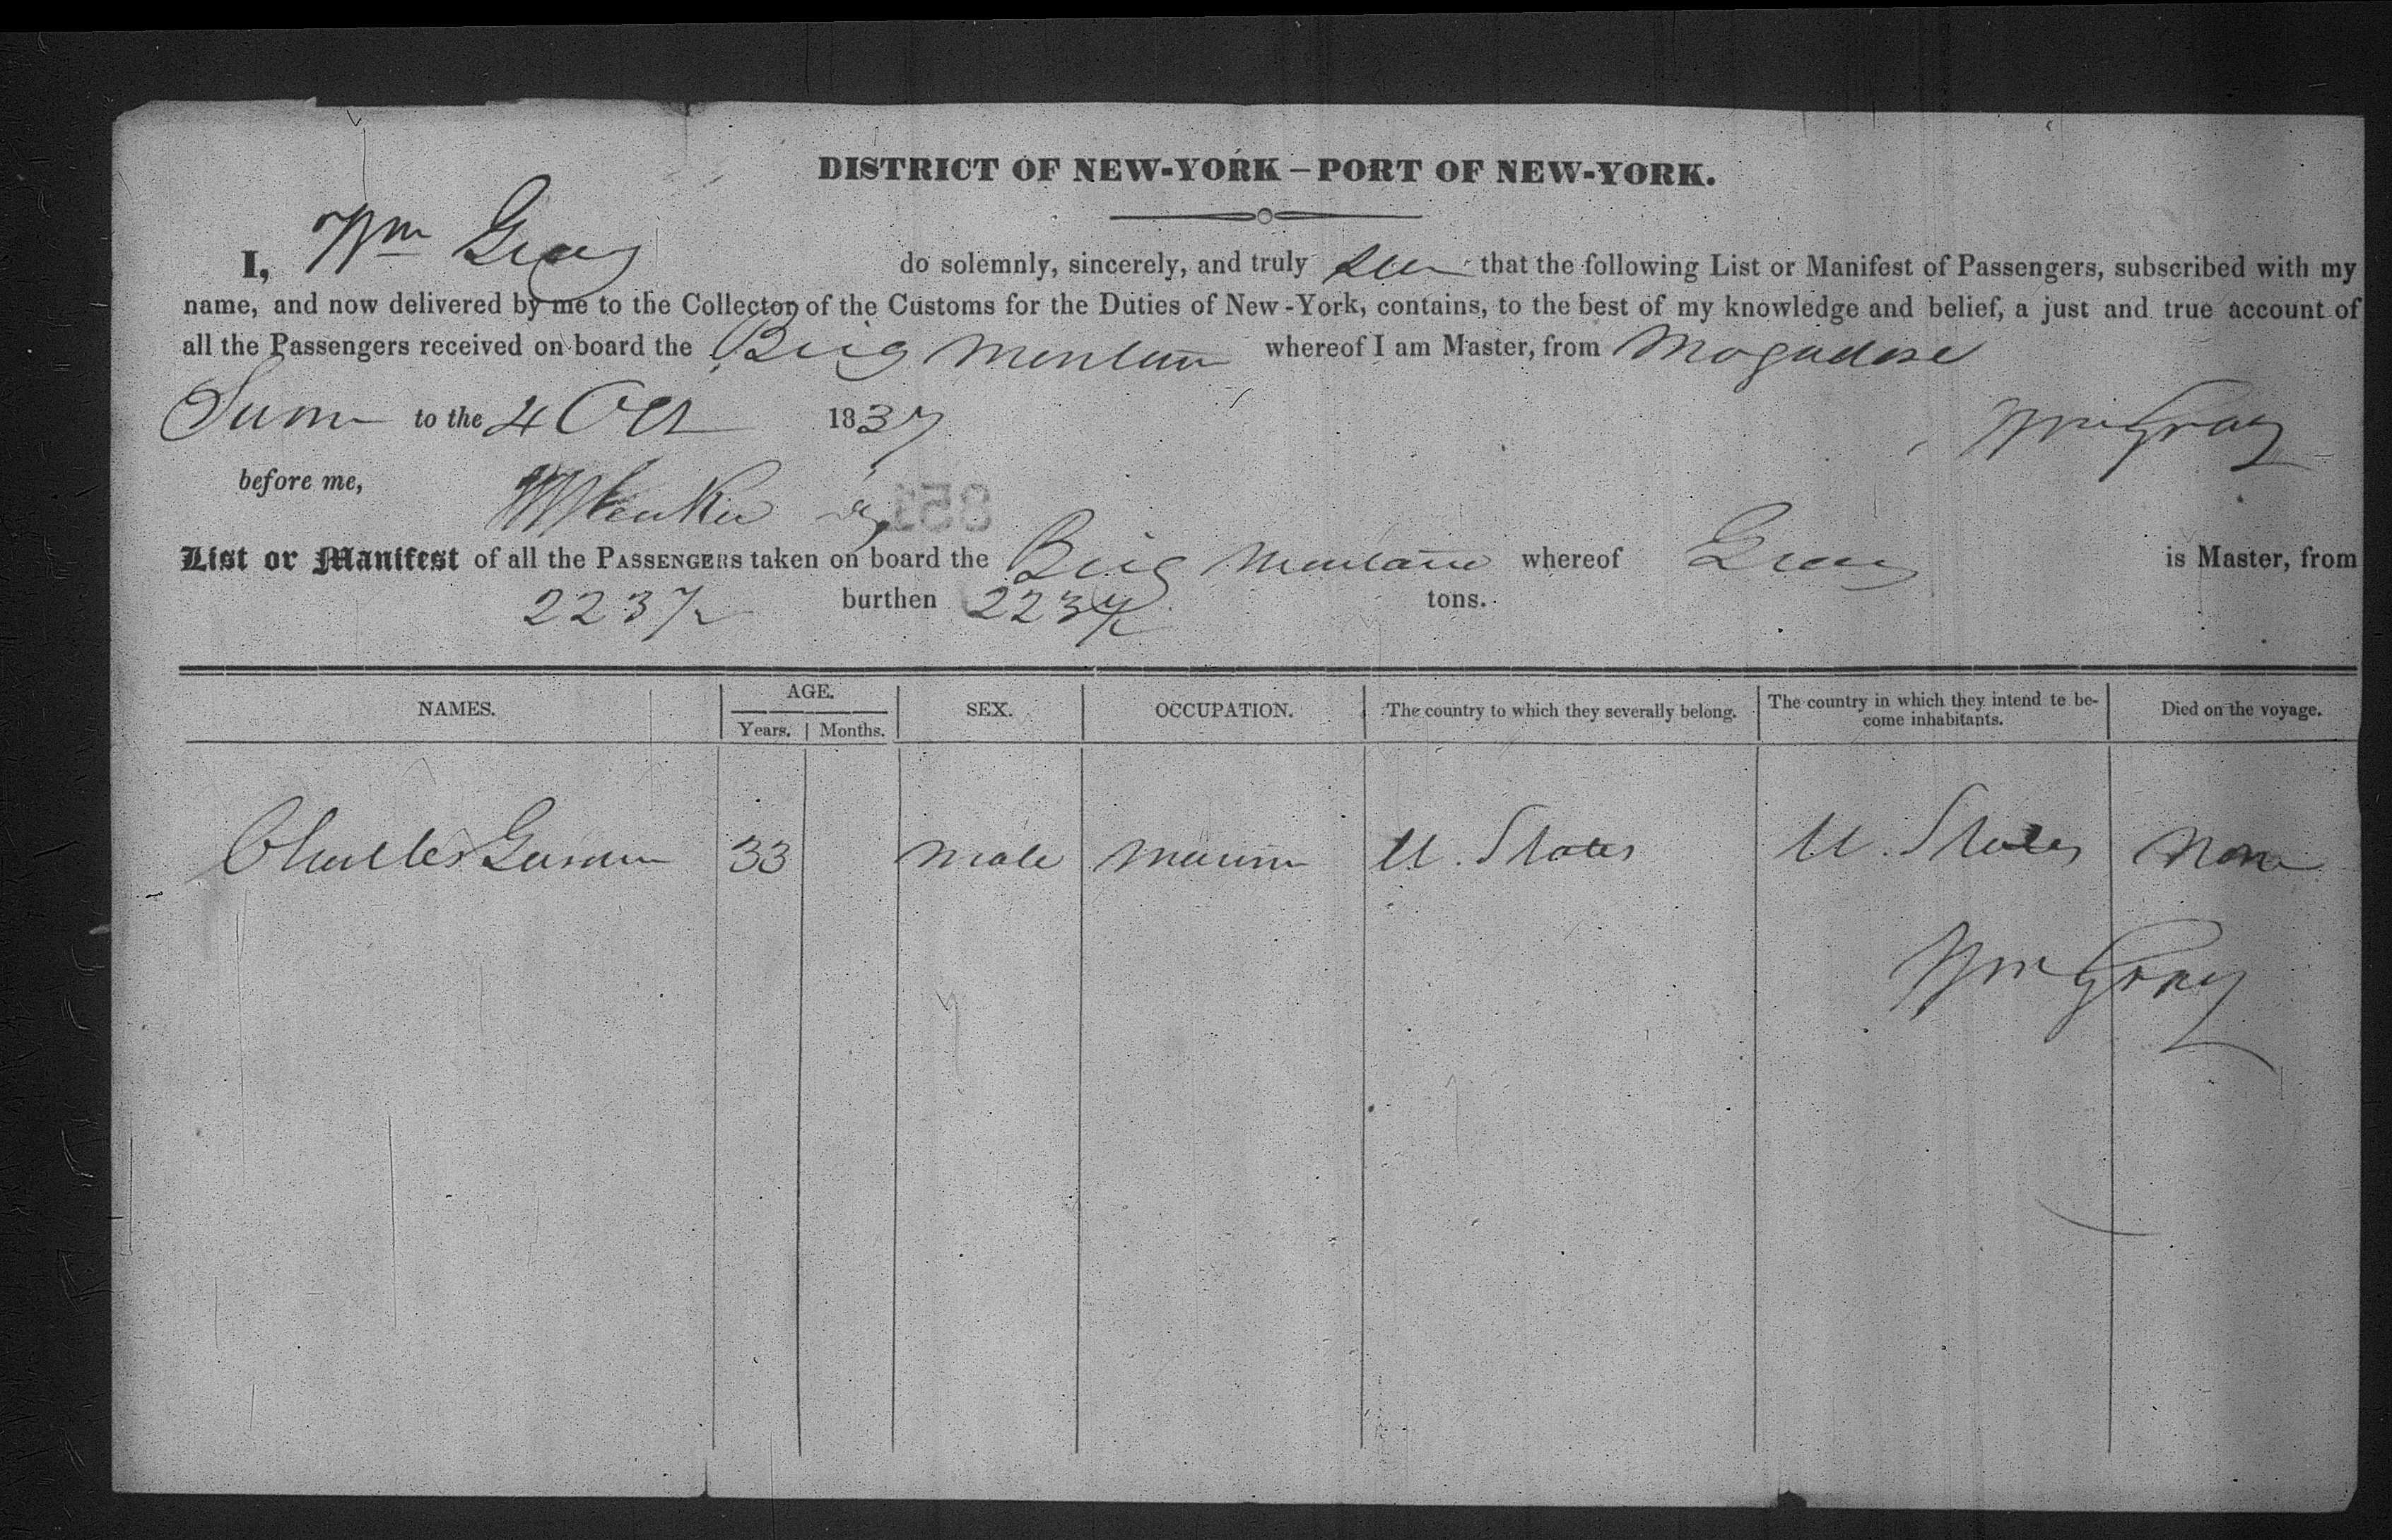 DISTRICT OF NEW-YORK – PORT OF NEW-YORK.
I, Wm Gray do solemnly, sincerely, and truly that the following List or Manifest of Passengers, subscribed with my
name, and now delivered by me to the Collector of the Customs for the Duties of New-York, contains, to the best of my knowledge and belief, a just and true account of
all the Passengers received on board the Brig whereof I am Master, from Mogadore
to the 4 Oct 1837 Wm Gray
before me,
List or Manifest of all the PASSENGERS taken on board the Brig whereof Gray is Master, from
burthen tons.
NAMES. AGE. Years. Months. SEX. OCCUPATION. The country to which they severally belong. The country in which they intend te become inhabitants. Died on the voyage.
Charles 33 male U. States U. States None
Wm Gray